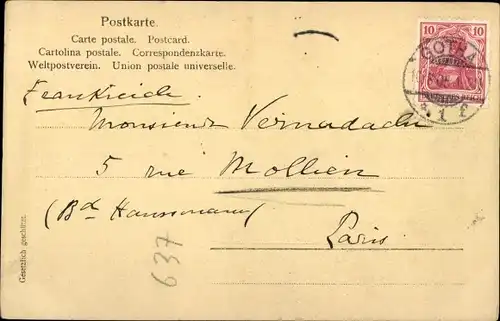 Postkarte.
Carte postale. Postcard.
Cartolina postale. Correspondenzkarte.
Weltpostverein. Union postale universelle.
10 10
DEUTSCHES REICH
GOTHA
* 1 f
Frankreich.
Monsieur Vernadachi
5 rue Mollien
(Bd Haussmann)
Paris.
637
Gesetzlich geschützt.